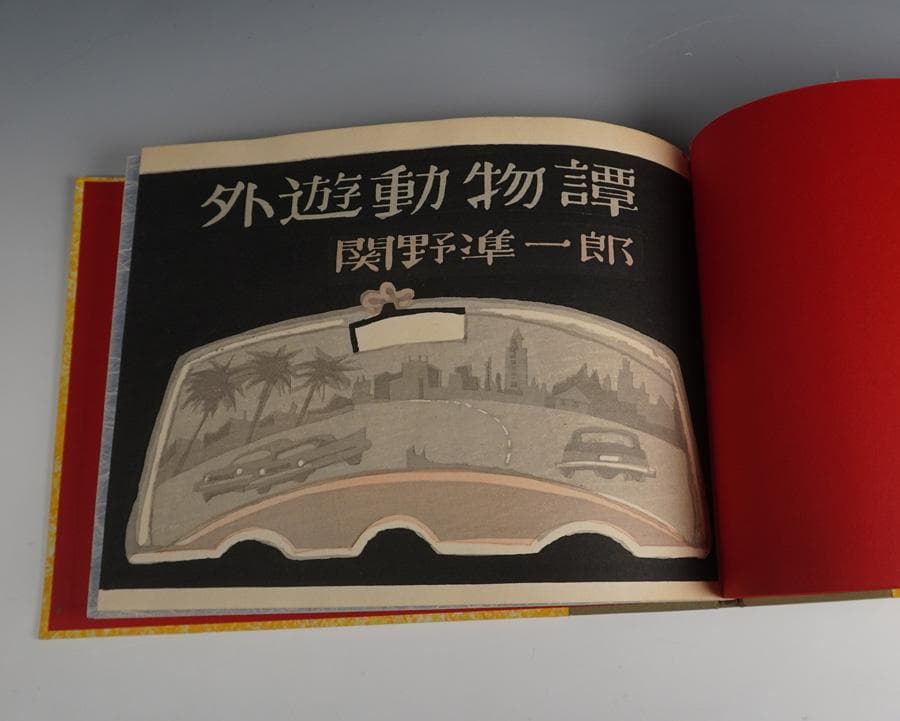 外遊動物譚
関野凖一郎